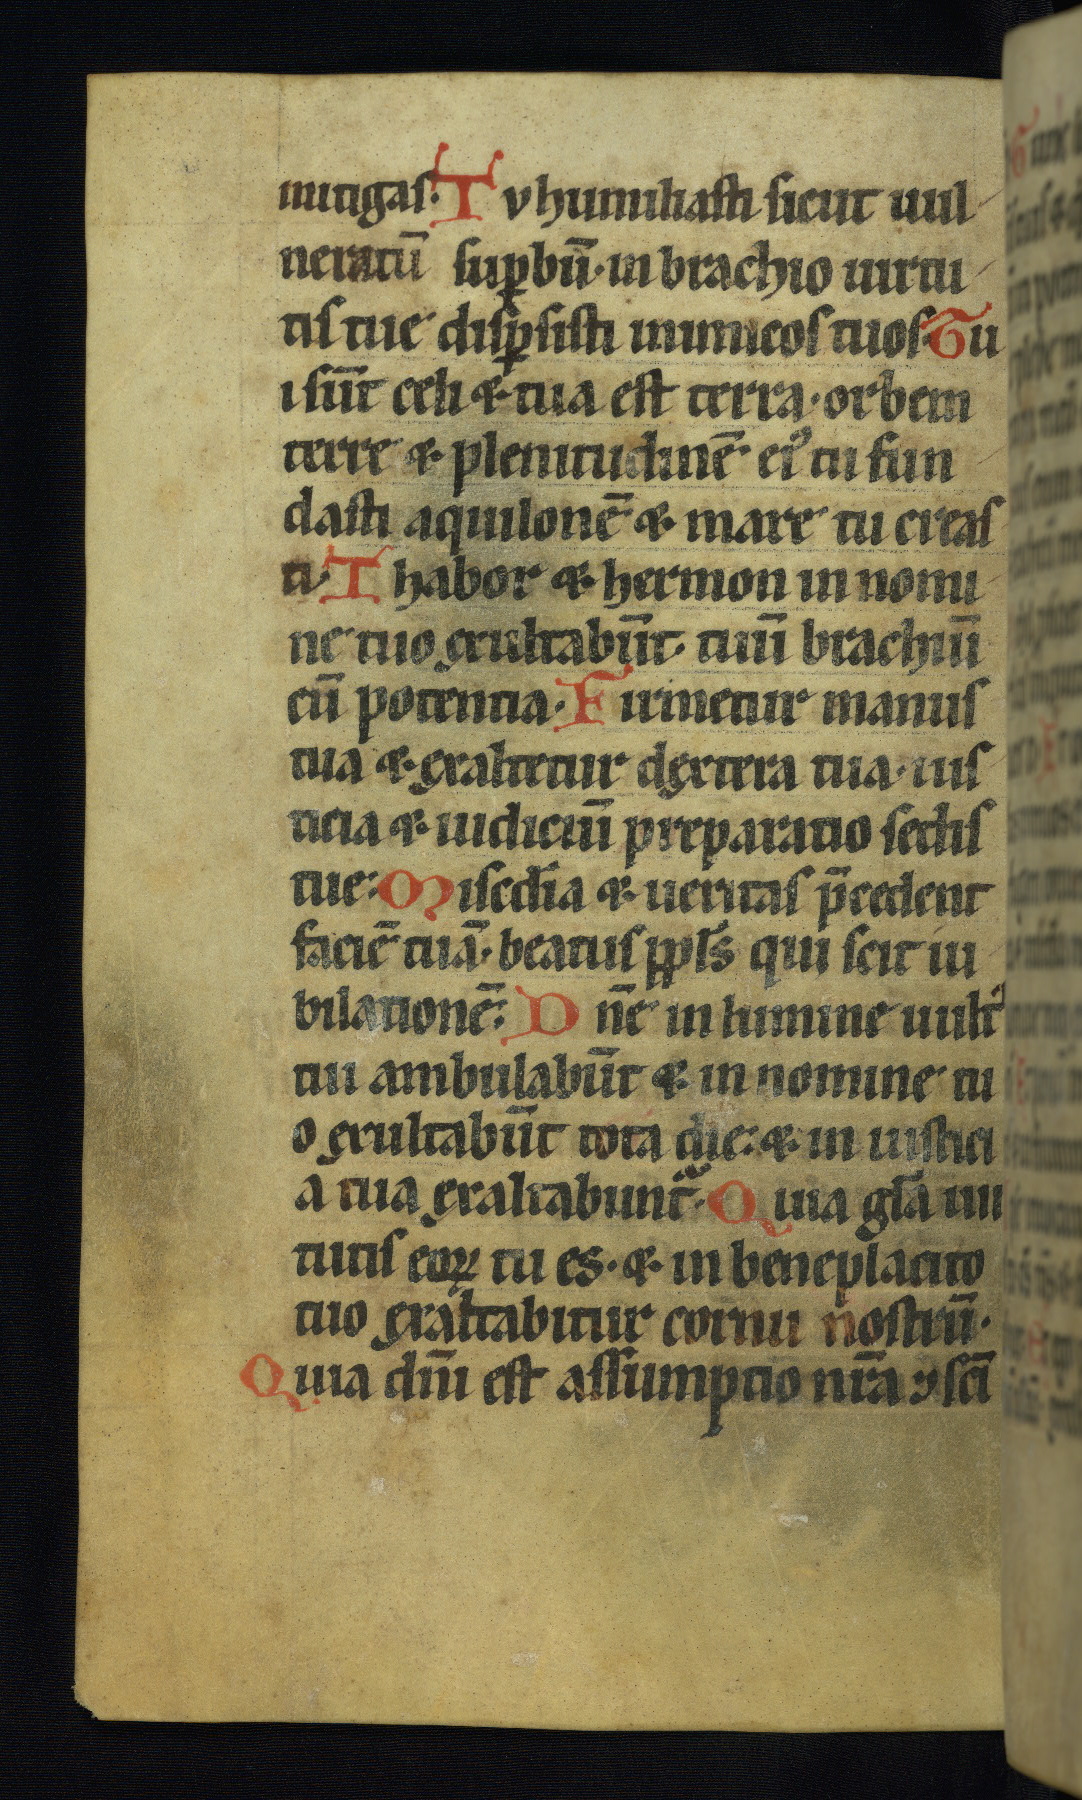 mitigas. Tv humiliasti sicut uul
neratū suꝑbū. in brachio uirtu
tis tue disꝑsisti inimicos tuos. Tu
i sūt celi & tua est terra. orbem
terre & plenitudinē ei᷒ tu fun
dasti aquilonē & mare tu creas
ti. Thabor & hermon in nomi
ne tuo exultabūt. tuū brachiū
cū potentia. Firmetur manus
tua & exaltetur dextera tua. ius
ticia & iudiciū preparatio sedis
tue: Misedīa & ueritas p̄cedent
faciē tuā. beatus ppl̄s qui scit iu
bilationē: Dn̄e in lumine uult᷒
tui ambulabūt & in nomine tu
o exultabūt tota die: & in iustici
a tua exaltabunt᷑. Quia gl̄a uir
tutis eoꝝ tu es. & in beneplacito
tuo exaltabitur cornu nostrū.
Quia dn̄i est assumptio nr̄a ⁊ sc̄i